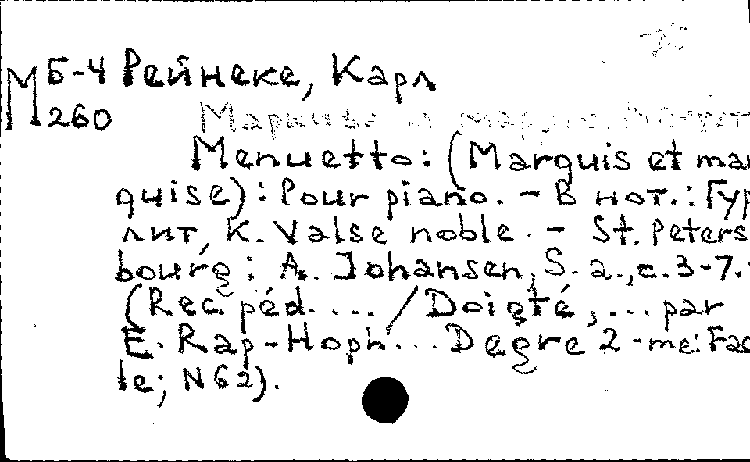 М Б-4 Рейнеке, Карл
260
Menuetto: (Marquis et mar
quise): Pour piano. - В нот.: Гур
лит, К. Valse noble. - St. Peters
bourg: A. Johansen, S. a., c. 3-7.
(Rec. péd. ... / Doigté, ... par
E. Rap-Hoph... Degre 2-me: Faci
le; N 62).